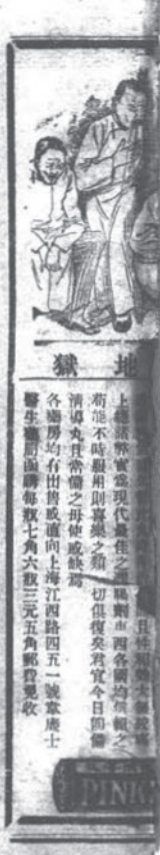 地獄
上述諸弊實為現代最佳之通腸劑東西各國均信賴之
苟能不時服用則喜樂之類一切俱復矣君宜今日即備
清導丸且當備之毋使或缺焉
各藥房均有出售或直向上海江西路四五一號韋廉士
醫生藥局函購每瓶七角六瓶三元五角郵費免收
PINK